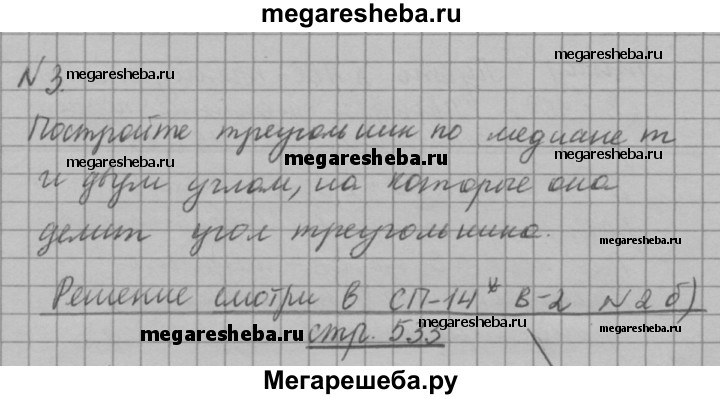 megaresheba.ru
N 3. megaresheba.ru megaresheba.ru
Постройте треугольник по медиане m
megaresheba.ru megaresheba.ru megaresheba.ru
и двум углам, на которые она
делит угол треугольника. megaresheba.ru
Решение смотри в СП-14* В-2 N2 б)
megaresheba.ru стр. 533 megaresheba.ru megaresheba.ru
Мегарешеба.ру